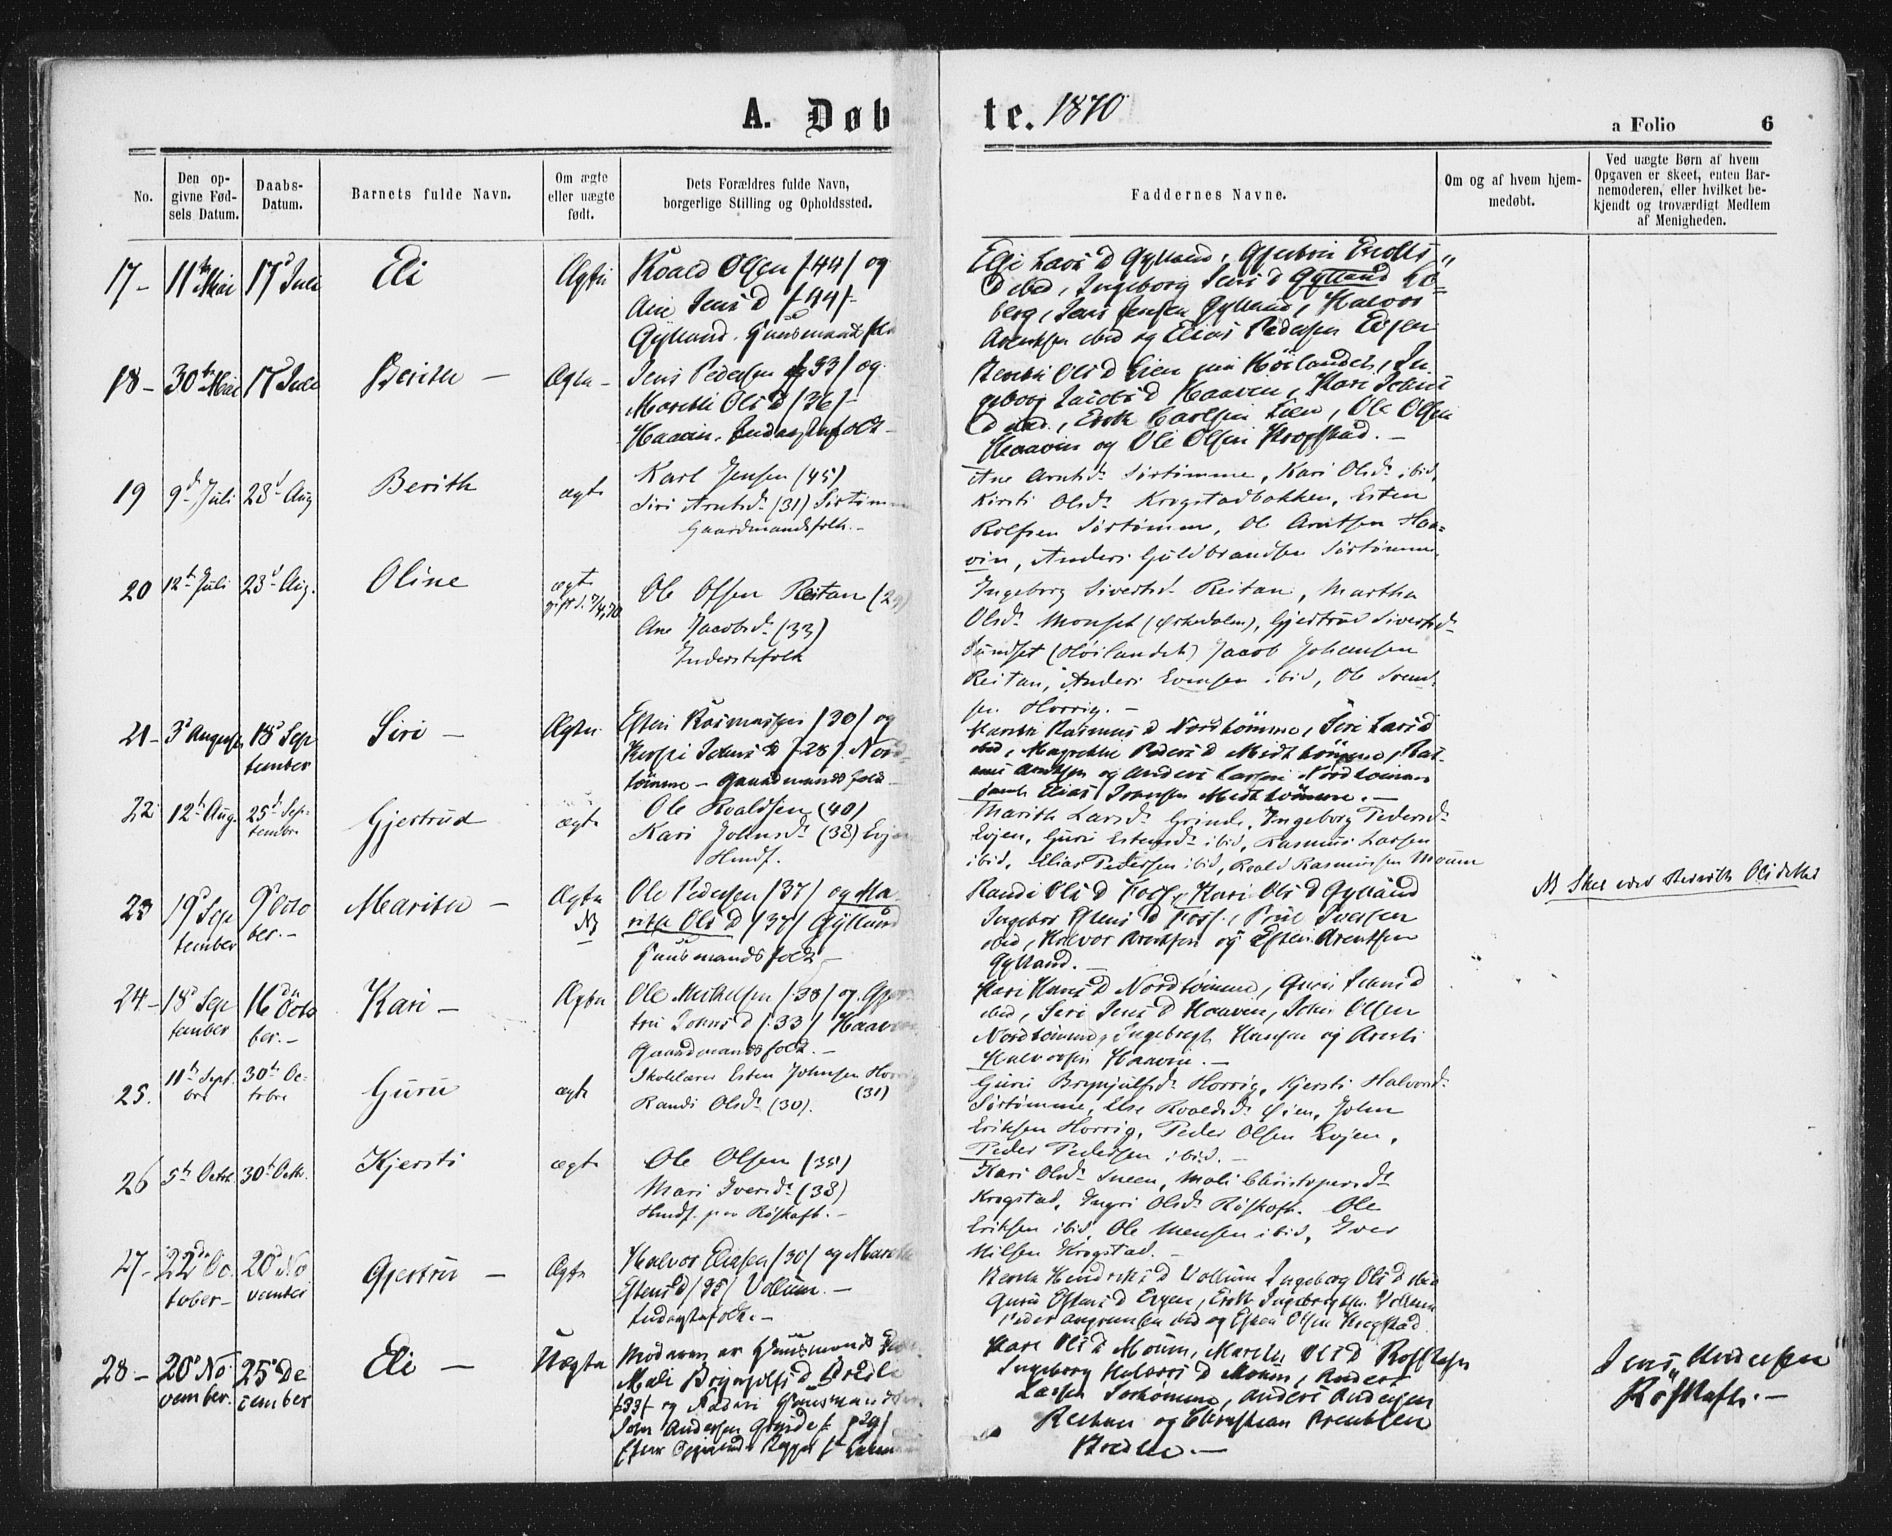 A. Døbte. 1870
a Folio 6
No.
Den opgivne Fødsels Datum.
Daabs-Datum.
Barnets fulde Navn.
Om ægte eller uægte født.
Dets Forældres fulde Navn, borgerlige Stilling og Opholdssted.
Faddernes Navne.
Om og af hvem hjemmedøbt.
Ved uægte Børn af hvem Opgaven er skeet, enten Barnemoderen, eller hvilket bekjendt og troværdigt Medlem af Menigheden.
17 - 11te Mai 17d Juli Eli Ægte
Roald Olsen /44/ og
Ane Jens D /44/
Gylland. Huusmandsfolk
Gylland, Ingeborg Jens D Gylland
berg, Jens Jensen Gylland, Halvor
Arentsen ibid og Elias Pedersen Evjen
18 - 30te Mai 17d Juli Berith - Ægte -
Jens Pedersen 33/ og
Marethe Ols D /36/ -
Haaven. Inderstfolk -
Berethe Ols D Lien, In
geborg Jacobs D Haaven, Kari Johns
D ibid., Erik Carlsen Lien, Ole Olsen
Haaven og Ole Olsen Krogstad. -
19 9d Juli 28d Aug Berith ægte
Karl Jensen (45)
Siri Arntsdr (31) Sørtømme
Gaardmandsfolk. -
Ane Arntsdr Sørtømme, Kari Olsdr ibid,
Kirsti Olsdr Krogstadbakken, Esten
Rolfsen Sørtømme, Ol Arntsen Haa-
ven, Anders Guldbrandsen Sørtømme
20 12t Juli 28d Aug. Oline ægte
gift d. 7/4 70
Ole Olsen Reitan (29)
Ane Jacobsdr (33)
Inderstefolk
Ingeborg Sivertsd Reitan, Martha
Olsdr Monset (Ørkedalen), Gjertrud Sivertsdr
Sundset (Høilandet) Jacob Johansen
Reitan, Anders Evensen ibid, Ole Svend-
sen Horrig. -
21 - 3d August 18d September Siri - Ægte
Esten Rasmussen /30/ og
Kersti Johns D /28/. Nord
tømme - Gaardmandsfolk -
Marith Rasmus D Nordtømme, Siri Lars D
ibid, Magrethe Peders D Midttømme, Ras-
mus Arntsen og Anders Larsen Nordtømme
samt Elias Johnsen Midttømme. -
22 12t Aug 25d September Gjertrud ægte
Ole Roaldsen (40)
Kari Johnsdr (38) Evjen
Hmdf.
Marith Larsdr Grinde, Ingeborg Pedersdr
Evjen, Guru Estensdr ibid, Rasmus Larsen
ibid, Elias Pedersen ibid, Roald Rasmussen Moum
23 19d September 9d October. - Marith - Ægte
NB
Ole Pedersen /37/ og Ma-
rith Ols D /37/ Gylland
Huusmandsfolk -
Randi Ols D Foss, Kari Ols D Gylland
Ingebor Estens D Foss, Poul Iversen
ibid, Halvor Arentsen og Esten Arentsen
Gylland. -
NB Skes ved Berith Olsdatter
24 - 18d September 16de October. - Kari - Ægte
Ole Mikkelsen /38/ og Gjer
tru Johns D /33/ Haaven
Gaardmandsfolk. -
Kari Hans D Nordtømme, Guru Johns D
ibid, Siri Jens D Haaven, John Olsen
Nordtømme, Ingebregt Hansen og Arnt
Halvorsen Haaven. -
25. 11t Septbre 30te Octobre Guru ægte
Skolelærer Esten Johnsen Horrig (31)
Randi Olsdr (30).
Guru Brynjulfsdr Horrig, Kjersti Halvorsdr
Sørtømme, Else Roaldsdr Øien, John
Eriksen Horrig, Peder Olsen Evjen,
Peder Pedersen ibid. -
26 5t Octbr. 30t Octbr. Kjersti ægte
Ole Olsen (35)
Mari Iversdr (38)
Hmdf. paa Røskaft. -
Kari Olsdr Sneen, Mali Christopersdr
Krogstad, Ingri Olsdr Røskaft. Ole
Eriksen ibid, Ole Monsen ibid, Iver
Nilsen Krogstad. -
27 - 22de October - 20d November Gjertru - Ægte
Halvor Eliasen /30/ og Marethe
Estens D /35/ Vollum. -
Inderstefolk. -
Berith Hendriks D Vollum Ingeborg Ols D ibid
Guru Estens D Evjen, Erik Ingebregtsen Vollum
Peder ibid og Esten Olsen Krogstad
28 - 20d November. 25d December Eli - Uægte
Moderen er Huusmands
Mali Brynjolfs D Bredle
/33/ og Fader Huusmands
John Andersen Grinde /29/
Kari Ols D Moum, Marethe Ols D Røskaft
Ingeborg Halvors D Moum, Anders
Larsen Sørtømme, Anders Andersen
Reitan og Christian Arentsen
Bredle. -
Jens Andersen
Røskaft. -